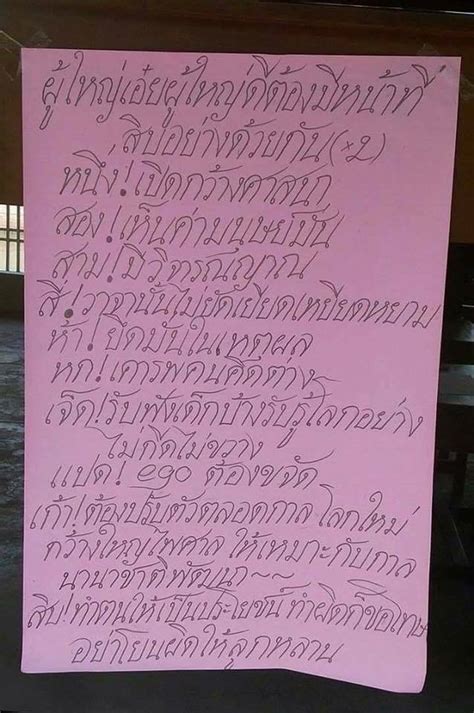 ผู้ใหญ่เอ๋ยผู้ใหญ่ดีต้องมีหน้าที่
สิบอย่างด้วยกัน(×2)
หนึ่ง!เปิดกว้างศาสนา
สอง!เห็นค่ามนุษย์มั่น
สาม!มีวิจารณญาณ
สี่!วาจานั้นไม่ยัดเยียดเหยียดหยาม
ห้า!ยึดมั่นในเหตุผล
หก!เคารพคนคิดต่าง~
เจ็ด!รับฟังเด็กบ้างรับรู้โลกอย่าง
ไม่กีดไม่ขวาง
แปด! ego ต้องขจัด
เก้า!ต้องปรับตัวตลอดกาล โลกใหม่
กว้างใหญ่ไพศาล ให้เหมาะกับกาล
นานาชัดพัฒนา~~
สิบ!ทำตนให้เป็นประโยชน์ ทำผิดก็ขอโทษ
อย่าโยนผิดให้ลูกหลาน